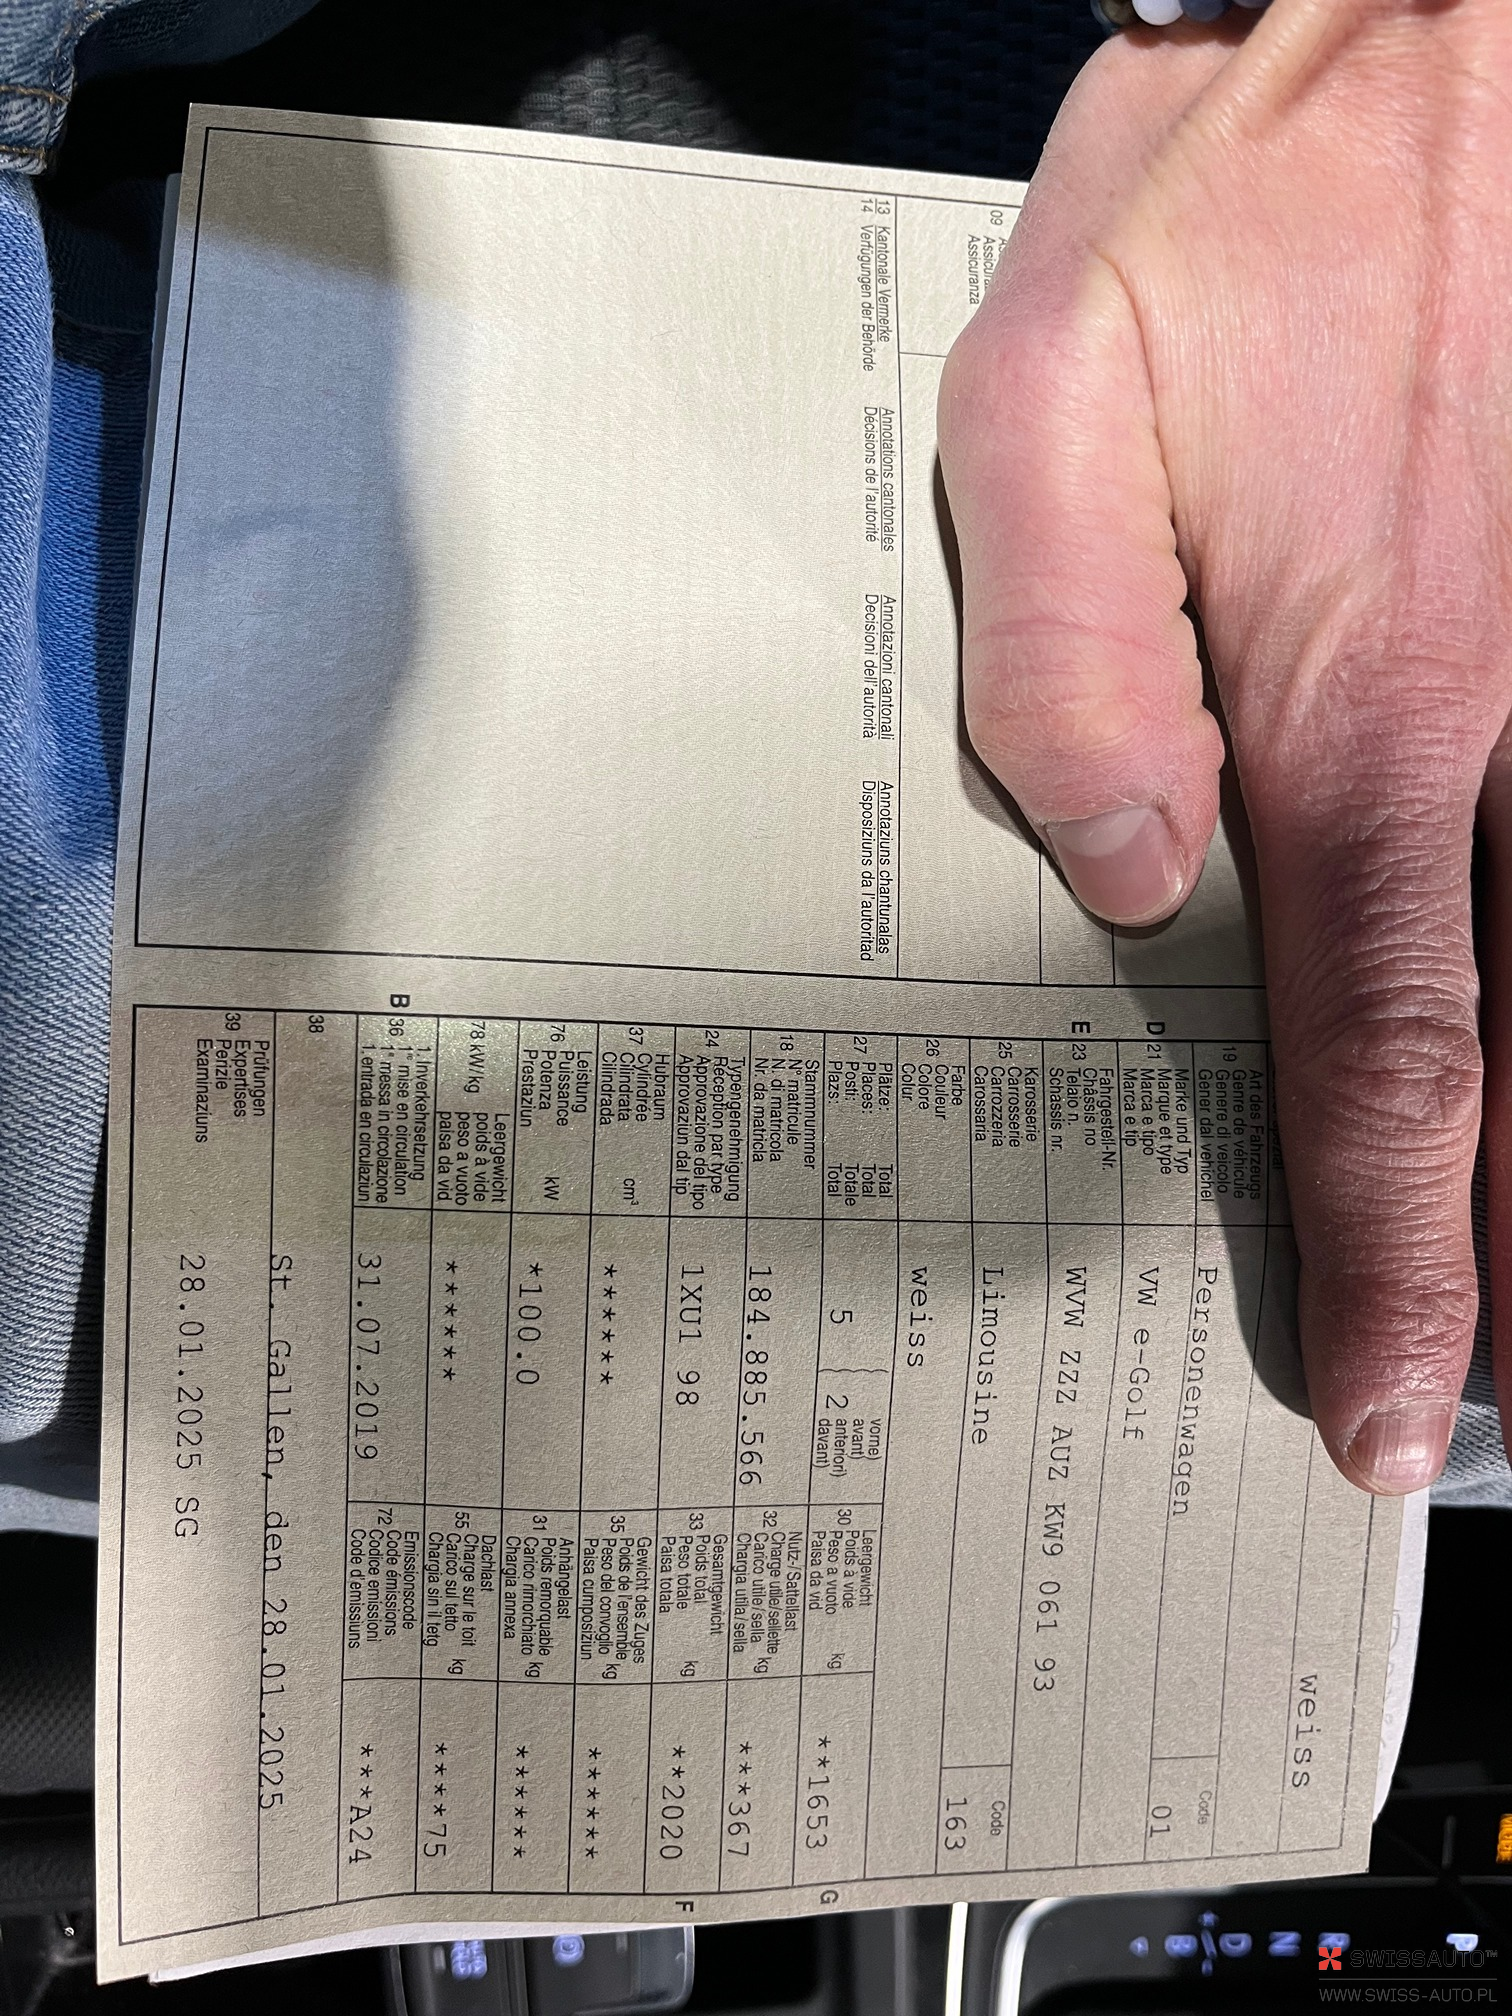 09
Assicuranza
13 Kantonale Vermerke Annotations cantonales Annotazioni cantonali Annotaziuns chantunalas
14 Verfügungen der Behörde Décisions de l'autorité Decisioni dell'autorità Disposiziuns da l'autoritad
weiss
Art des Fahrzeugs
19 Genre de véhicule
Genere di veicolo
Gener dal vehichel
Personenwagen
Code
01
Marke und Typ
D 21 Marque et type
Marca e tipo
Marca e tip
VW e-Golf
Fahrgestell-Nr.
E 23 Châssis no
Telaio n.
Schassis nr.
WVW ZZZ AUZ KW9 061 93
Karosserie
25 Carrosserie
Carrozzeria
Carossaria
Limousine
Code
163
Farbe
26 Couleur
Colore
Colur
weiss
Plätze: Total
27 Places: Total
Posti: Totale
Plazs: Total
5
vorne)
avant)
2 anteriori)
davant)
Leergewicht
30 Poids à vide
Peso a vuoto
Paisa da vid kg
**1653
G
Stammnummer
18 N° matricule
N. di matricola
Nr. da matricla
184.885.566
Nutz-/Sattellast
32 Charge utile/sellette
Carico utile/sella kg
Chargia utila/sella
***367
Typengenehmigung
24 Réception par type
Approvazione del tipo
Approvaziun dal tip
1XU1 98
Gesamtgewicht
33 Poids total
Peso totale kg
Paisa totala
**2020
F
Hubraum
37 Cylindrée
Cilindrata cm³
Cilindrada
******
Gewicht des Zuges
35 Poids de l'ensemble
Peso del convoglio kg
Paisa cumposiziun
******
Leistung
76 Puissance
Potenza kW
Prestaziun
*100.0
Anhängelast
31 Poids remorquable
Carico rimorchiato kg
Chargia annexa
******
Leergewicht
78 kW/kg poids à vide
peso a vuoto
paisa da vid
******
Dachlast
55 Charge sur le toit
Carico sul tetto kg
Chargia sin il tetg
****75
1. Inverkehrsetzung
B 36 1re mise en circulation
1a messa in circolazione
1. entrada en circulaziun
31.07.2019
Emissionscode
72 Code émissions
Codice emissioni
Code d'emissiuns
***A24
38
St. Gallen, den 28.01.2025
Prüfungen
39 Expertises
Perizie
Examinaziuns
28.01.2025 SG
R
N
D
B
P
SWISSAUTO™
WWW.SWISS-AUTO.PL